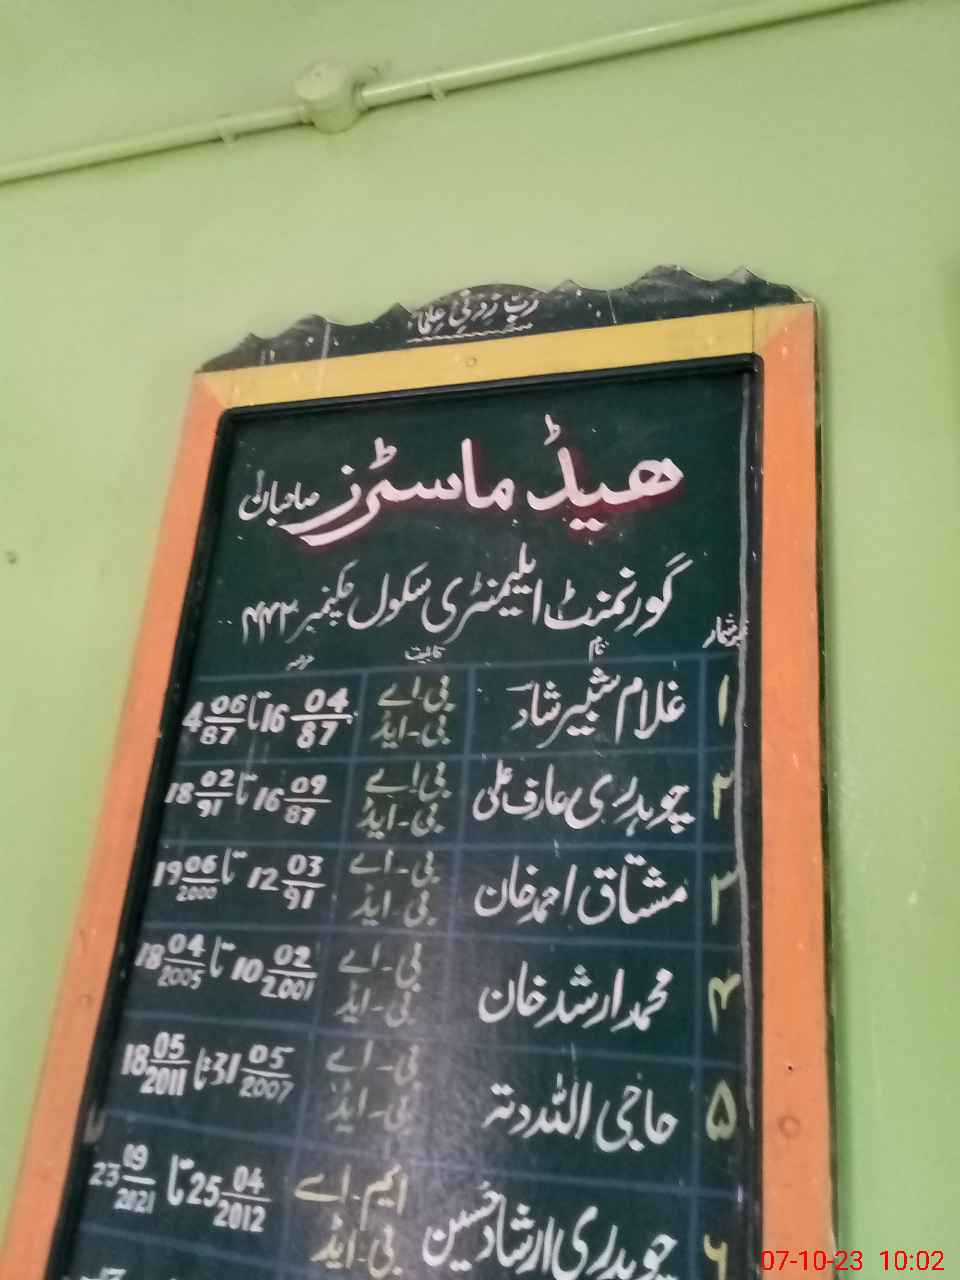 رَبِّ زِدْنِي عِلْمًا
ھیڈ ماسٹرز صاحبان
گورنمنٹ ایلیمنٹری سکول چکنمبر ۴۴۲
نمبر شمار نام قابلیت عرصہ
۱ غلام شبیر شاد بی-اے بی-ایڈ 16 04/87 تا 4 06/87
۲ چوہدری عارف علی بی-اے بی-ایڈ 16 09/87 تا 18 02/91
۳ مشتاق احمد خان بی-اے بی-ایڈ 12 03/91 تا 19 06/2000
۴ محمد ارشد خان بی-اے بی-ایڈ 10 02/2001 تا 18 04/2005
۵ حاجی اللہ دتہ بی-اے بی-ایڈ 31 05/2007 تا 18 05/2011
۶ چوہدری ارشاد حسین ایم-اے بی-ایڈ 25 04/2012 تا 23 09/2021
07-10-23 10:02